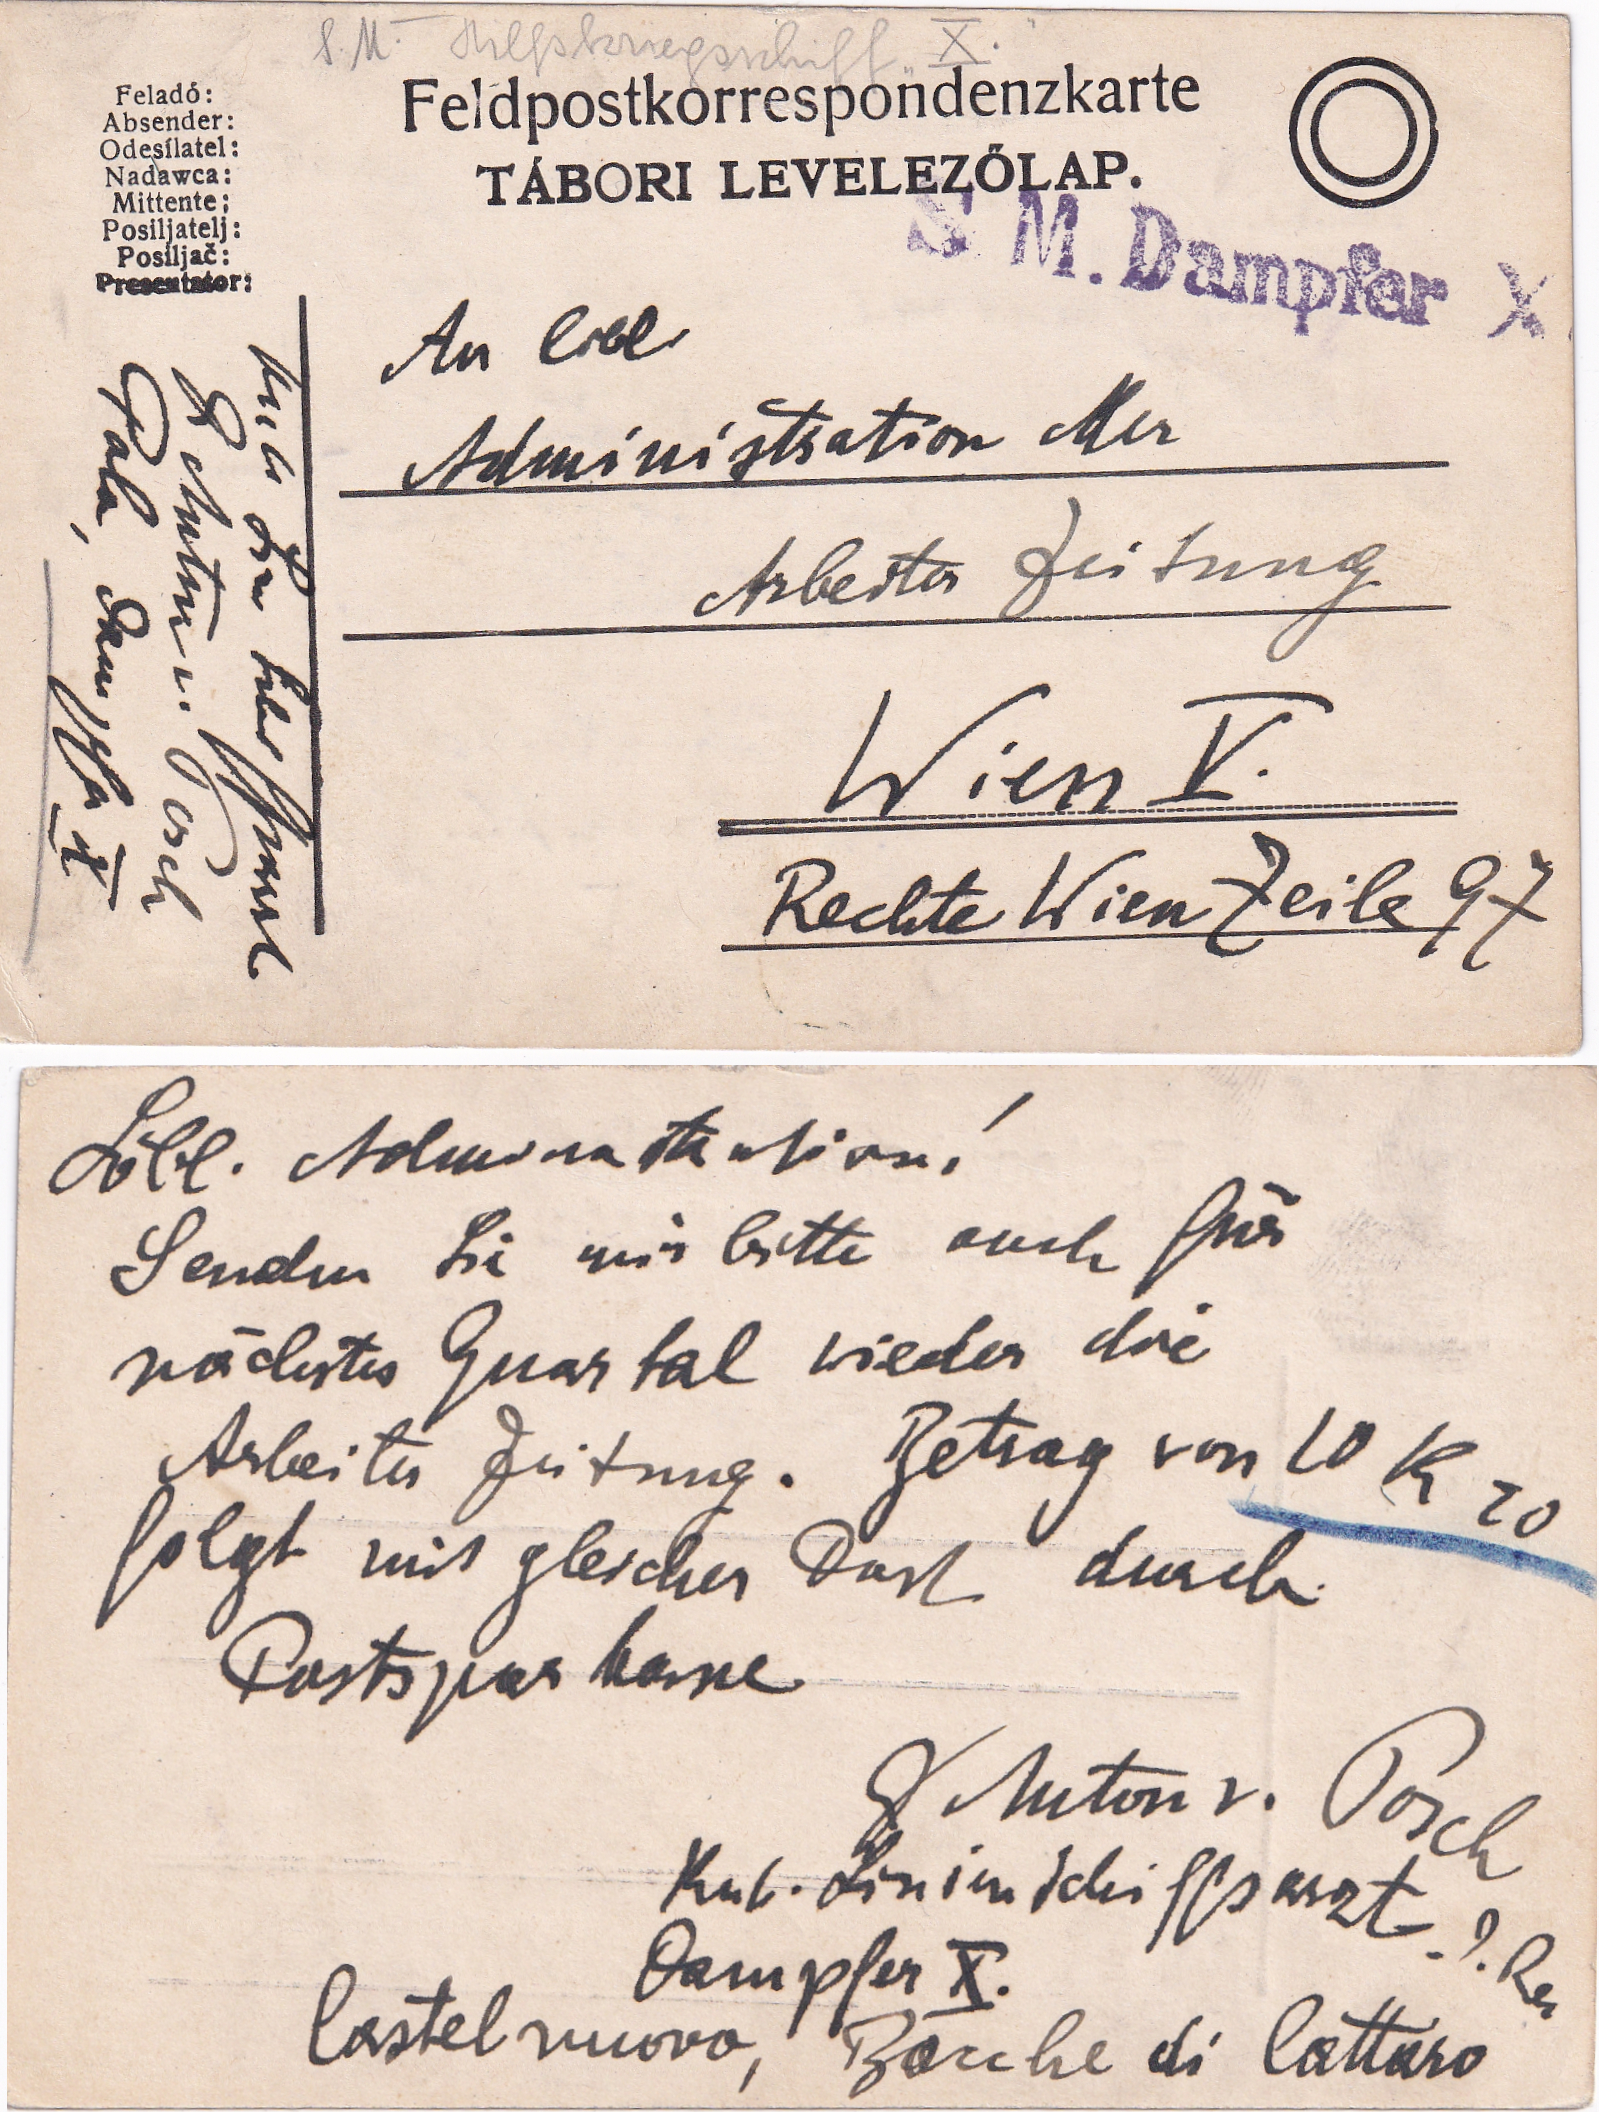 S. M. Hilfskriegsschiff „X."
Feldpostkorrespondenzkarte
TÁBORI LEVELEZŐLAP.
Feladó:
Absender:
Odesílatel:
Nadawca:
Mittente:
Posiljatelj:
Posiljač:
Presentator:
S M. Dampfer X
An löbl.
Administration der
Arbeiter Zeitung
Wien V.
Rechte Wien Zeile 97
Linienschiffsarzt
Dr Anton v. Posch
Pola, Dampfer X
Löbl. Administration!
Senden Sie mir bitte auch für
nächstes Quartal wieder die
Arbeiter Zeitung. Betrag von 10 K 20
folgt mit gleicher Post durch
Postsparkasse
Dr Anton v. Posch
Kuk. Linienschiffsarzt d. Res
Dampfer X.
Castelnuovo, Bocche di Cattaro